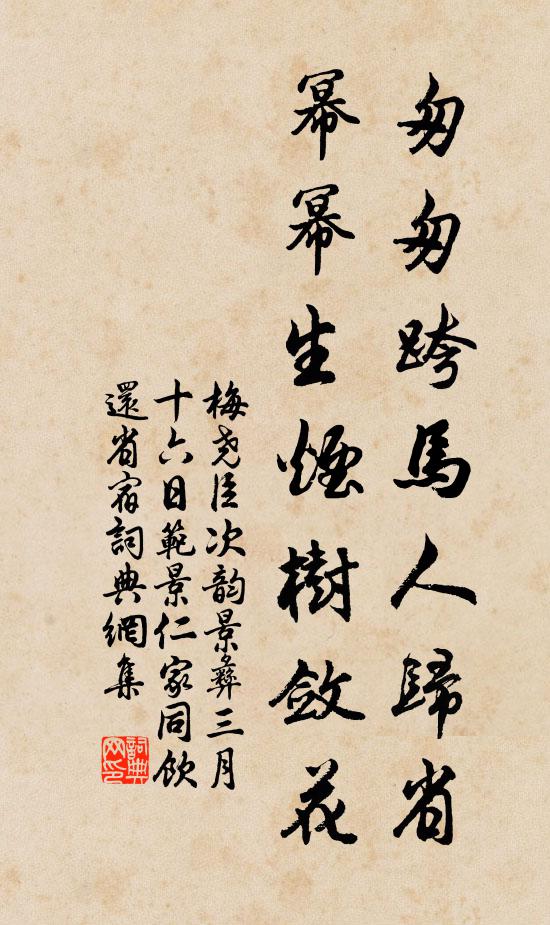 匆匆跨馬人歸省
冪冪生煙樹斂花
梅堯臣次韵景彝三月
十六日範景仁家同飲
還省宿詞典網集
詞典
网印